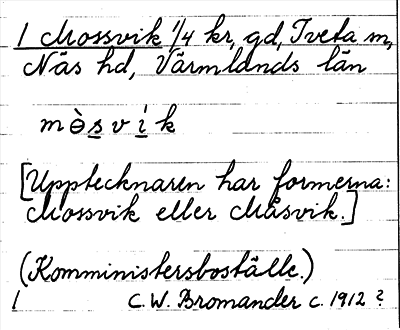 1 Mossvik 1/4 kr, gd, Tveta sn,
Näs hd, Värmlands län
mòsvík
[Upptecknaren har formerna:
Mossvik eller Måsvik.]
(Komministersboställe.)
1 C. W. Bromander c. 1912?